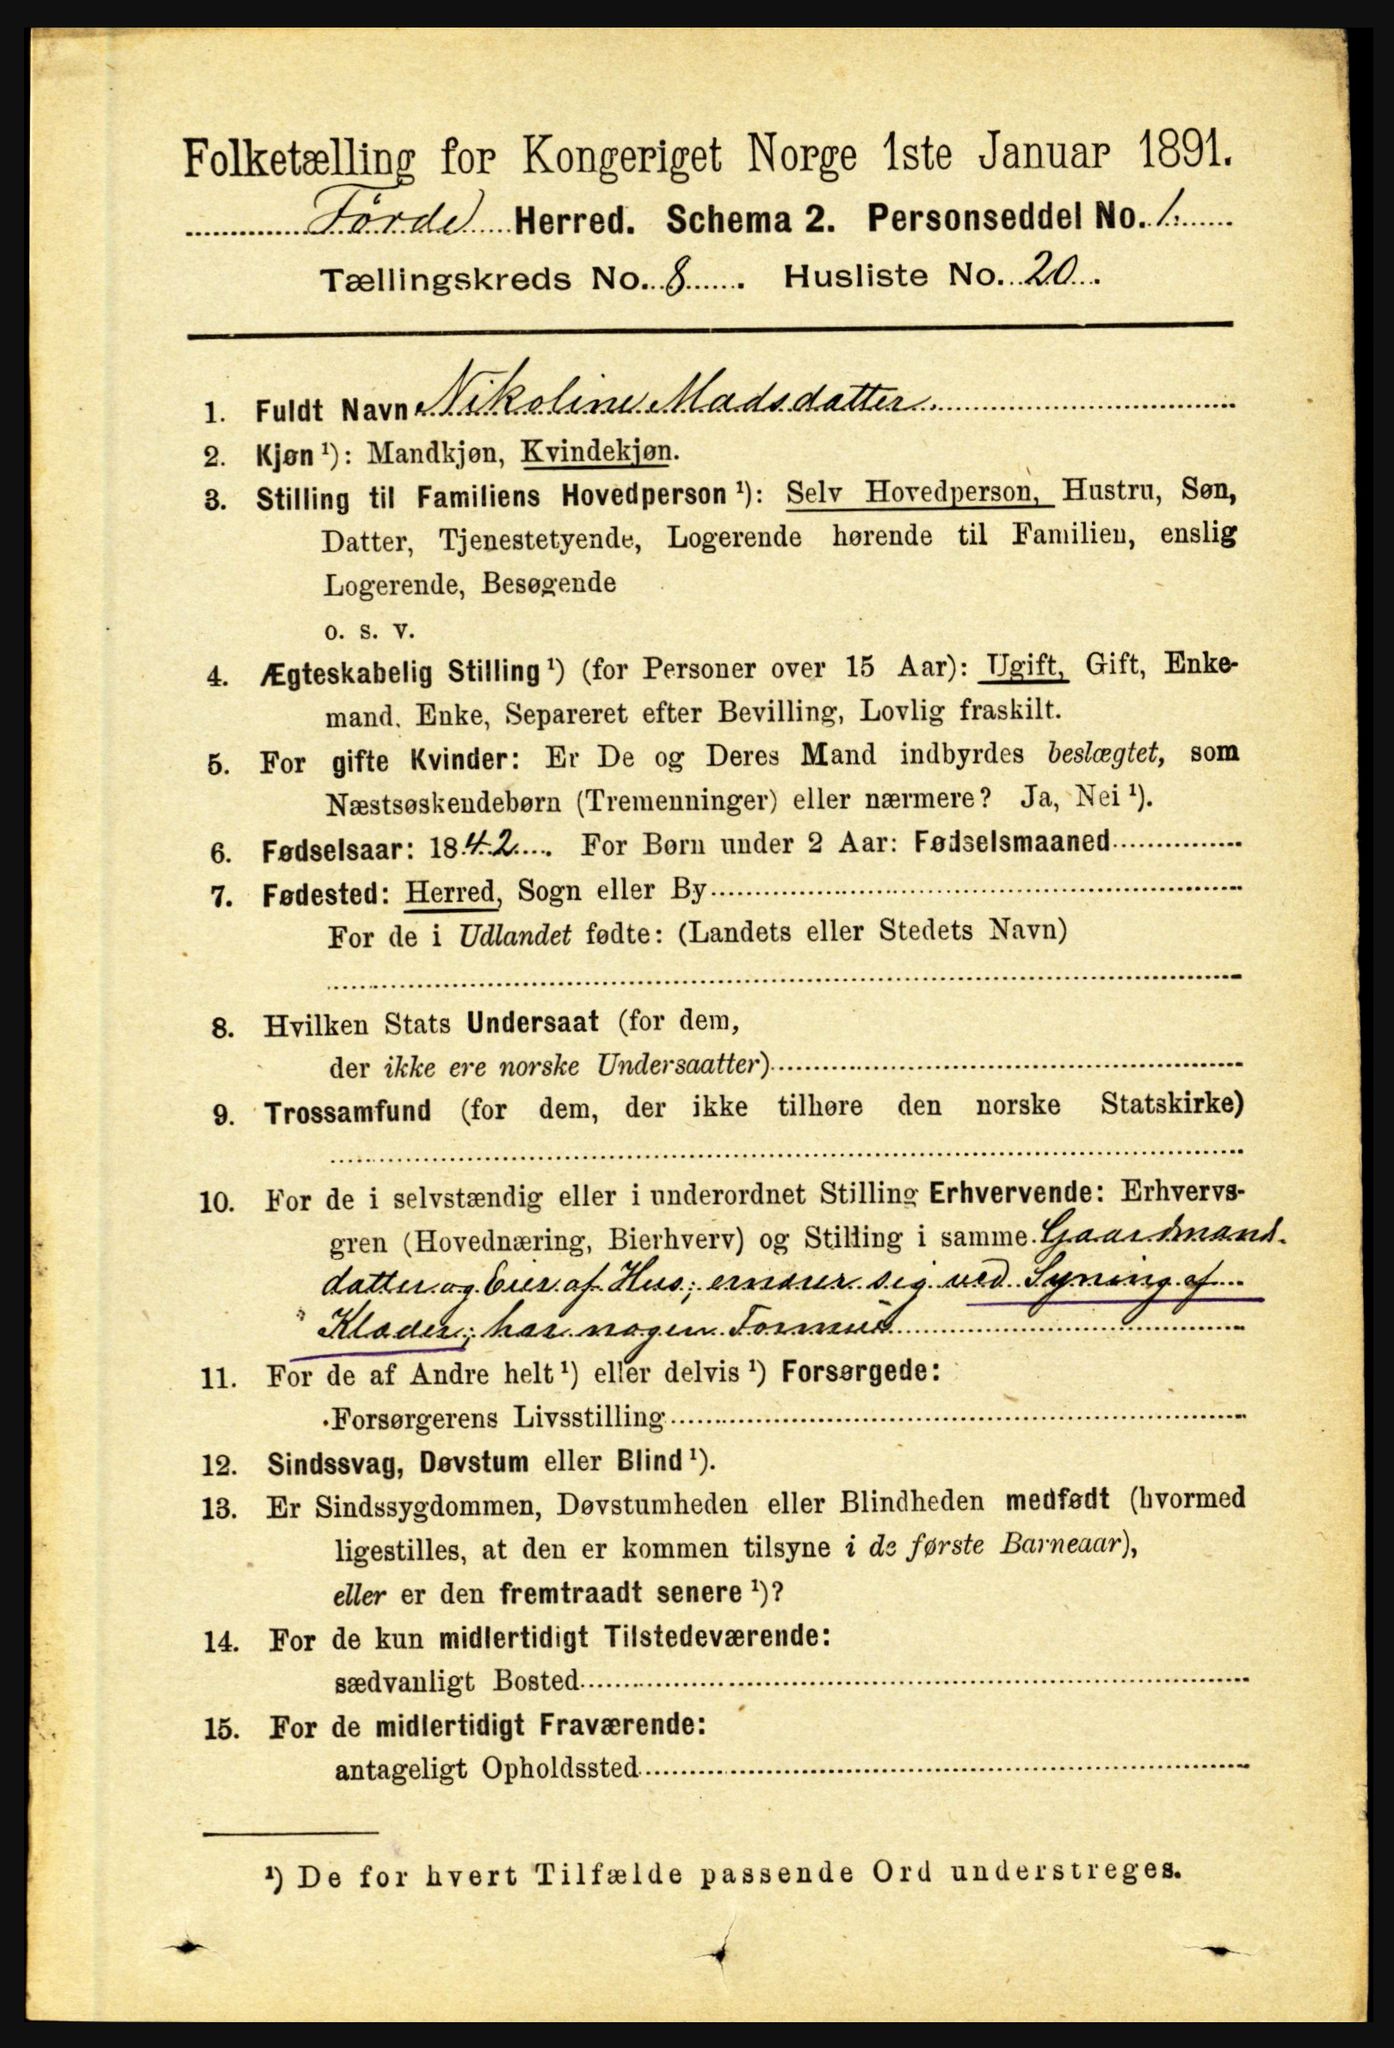 Folketælling for Kongeriget Norge 1ste Januar 1891.
Førde Herred. Schema 2. Personseddel No. 1.
Tællingskreds No. 8. Husliste No. 20.
1. Fuldt Navn Nikoline Madsdatter.
2. Kjøn ¹): Mandkjøn, Kvindekjøn.
3. Stilling til Familiens Hovedperson ¹): Selv Hovedperson, Hustru, Søn,
Datter, Tjenestetyende, Logerende hørende til Familien, enslig
Logerende, Besøgende
o. s. v.
4. Ægteskabelig Stilling ¹) (for Personer over 15 Aar): Ugift, Gift, Enke-
mand, Enke, Separeret efter Bevilling, Lovlig fraskilt.
5. For gifte Kvinder: Er De og Deres Mand indbyrdes beslægtet, som
Næstsøskendebørn (Tremenninger) eller nærmere? Ja, Nei ¹).
6. Fødselsaar: 1842. For Børn under 2 Aar: Fødselsmaaned
7. Fødested: Herred, Sogn eller By
For de i Udlandet fødte: (Landets eller Stedets Navn)
8. Hvilken Stats Undersaat (for dem,
der ikke ere norske Undersaatter)
9. Trossamfund (for dem, der ikke tilhøre den norske Statskirke)
10. For de i selvstændig eller i underordnet Stilling Erhvervende: Erhvervs-
gren (Hovednæring, Bierhverv) og Stilling i samme. Gaardmand-
datter og Eier af Hus; ernærer sig ved Syning af
Klæder; har nogen Formue
11. For de af Andre helt ¹) eller delvis ¹) Forsørgede:
Forsørgerens Livsstilling
12. Sindssvag, Døvstum eller Blind ¹).
13. Er Sindssygdommen, Døvstumheden eller Blindheden medfødt (hvormed
ligestilles, at den er kommen tilsyne i de første Barneaar),
eller er den fremtraadt senere ¹)?
14. For de kun midlertidigt Tilstedeværende:
sædvanligt Bosted
15. For de midlertidigt Fraværende:
antageligt Opholdssted
¹) De for hvert Tilfælde passende Ord understreges.